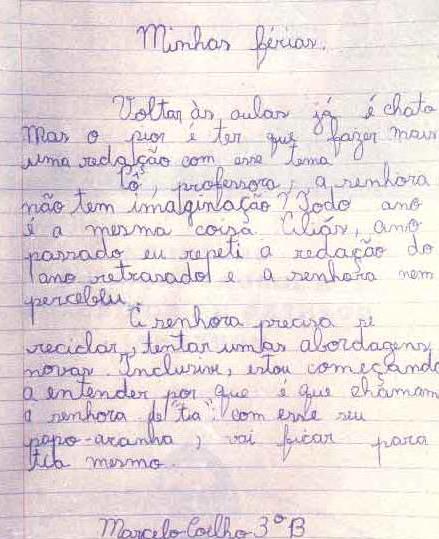 Minhas férias.
Voltar às aulas já é chato
Mas o pior é ter que fazer mais
uma redação com esse tema
Pô, professora, a senhora
não tem imaginação? Todo ano
é a mesma coisa. Aliás, ano
passado eu repeti a redação do
ano retrasado e a senhora nem
percebeu.
A senhora precisa se
reciclar, tentar umas abordagens
novas. Inclusive, estou começando
a entender por que é que chamam
a senhora de "tia": com esse seu
papo-aranha, vai ficar para
tia mesmo.
Marcelo Coelho 3º B